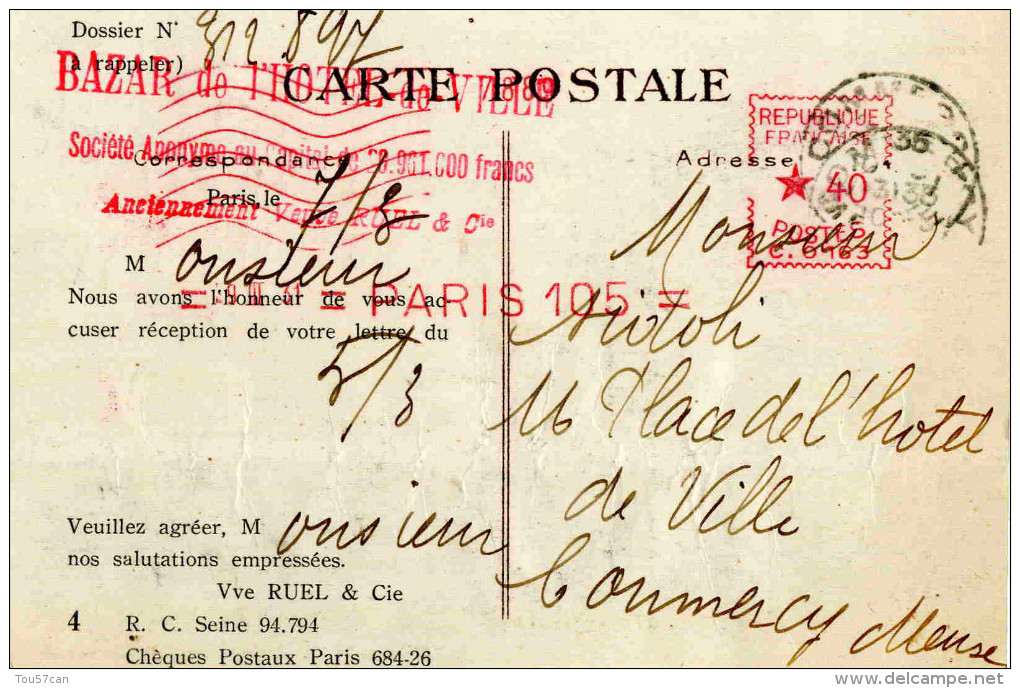 Dossier N° 312.897
à rappeler)
CARTE POSTALE
BAZAR de l'HOTEL de VILLE
Société Anonyme au Capital de francs
Anciennement Veuve RUEL & Cie
Correspondance
Paris, le 7/3
Monsieur
= III = PARIS 105 =
Nous avons l'honneur de vous ac-
cuser réception de votre lettre du
5/3
Veuillez agréer, Monsieur
nos salutations empressées.
Vve RUEL & Cie
4 R. C. Seine 94.794
Chèques Postaux Paris 684-26
REPUBLIQUE
FRANÇAISE
40
POSTES
Adresse
Monsieur
16 Place de l'hotel
de Ville
Commercy Meuse
Tou57can
www.delcampe.net